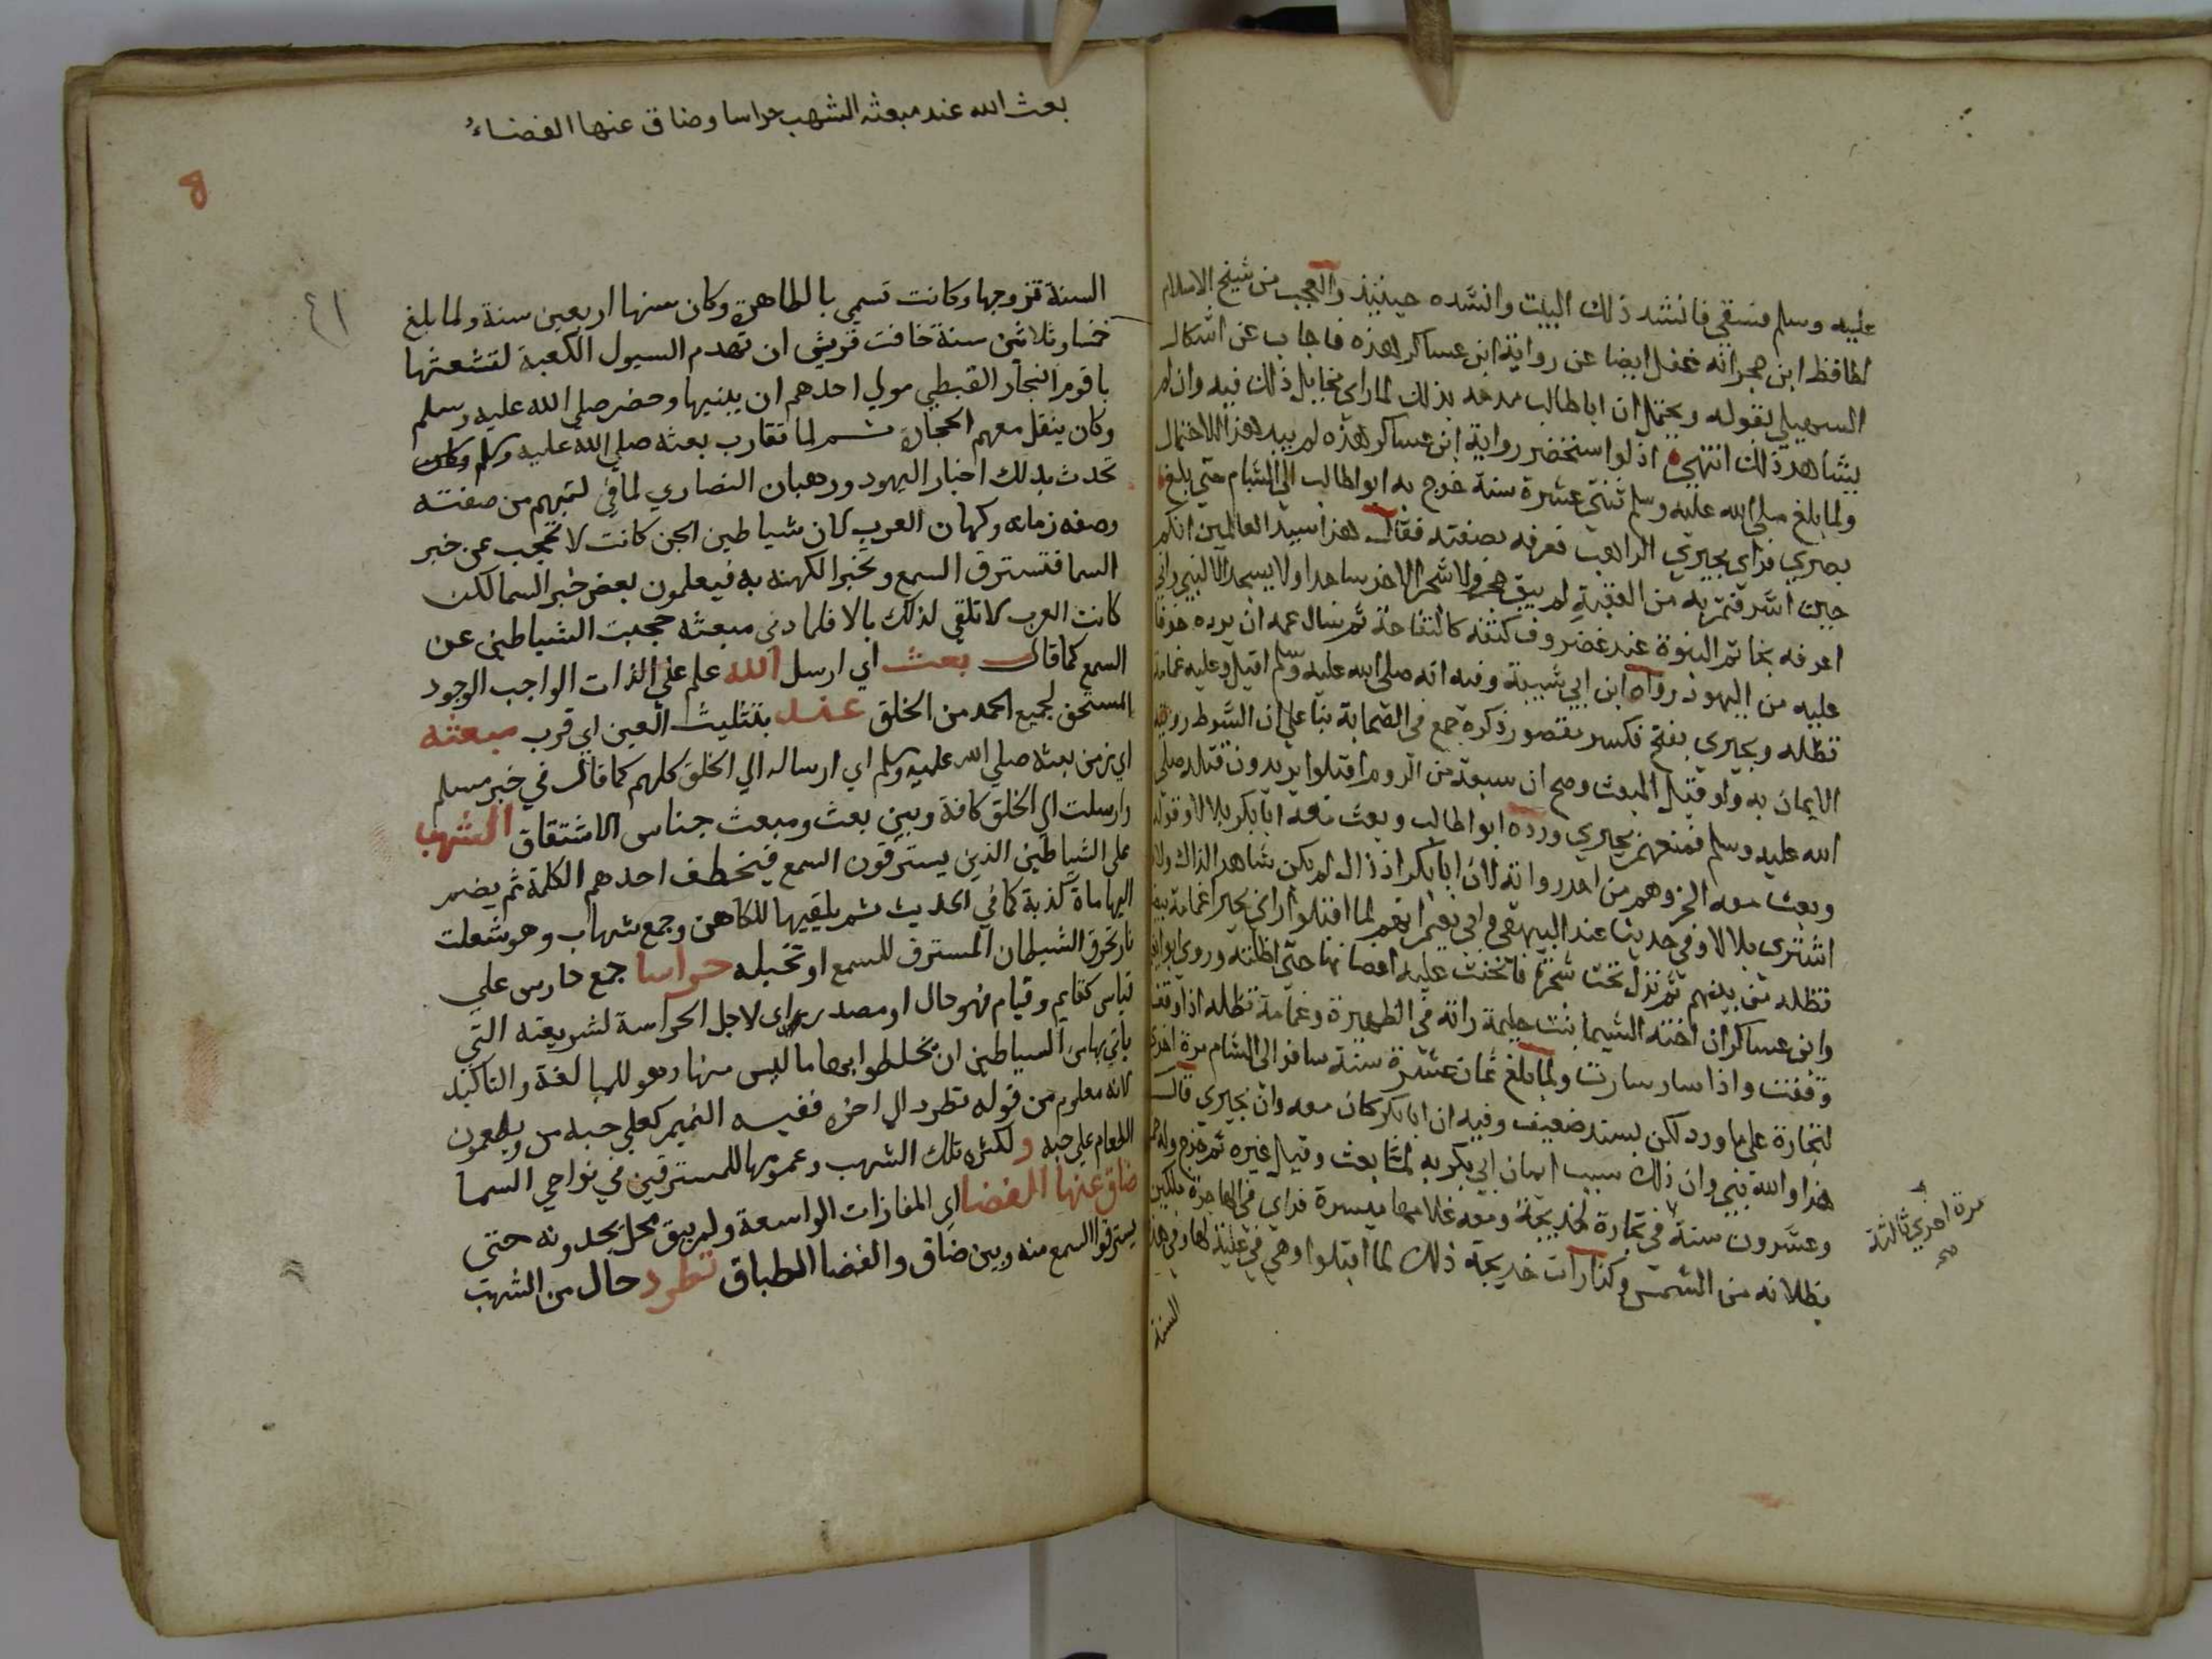 عليه وسلم فسقي فانشد ذلك البيت وانشده حينئذ والعجب من شيخ الاسلام
لحافظ ابن حجر انه غفل ايضا عن رواية ابن عساكر هذه فاجاب عن اشكال
السهيلي بقوله ويحتمل ان ابا طالب مدحه بذلك لما راي مخايل ذلك فيه وان لم
يشاهد ذلك انتهي اذ لو استحضر رواية ابن عساكر هذه لم يبد هذا الاحتمال
ولما بلغ صلي الله عليه وسلم ثنتي عشرة سنة خرج به ابو طالب الي الشام حتي بلغ
بصري فراي بحيري الراهب فعرفه بصفته فقال هذا سيد العالمين انكم
حين اشرفتم به من العقبة لم يبق حجر ولا شجر الا خر ساجدا ولا يسجد الا لنبي واني
اعرفه بخاتم النبوة عند غضروف كتفه كالتفاحة ثم سال عمه ان يرده خوفا
عليه من اليهود رواه ابن ابي شيبة وفيه انه صلي الله عليه وسلم اقبل وعليه غمامة
تظله وبحيري بفتح فكسر مقصور ذكره جمع في الصحابة بنا علي ان الشوط
الايمان به ولو قبل المبعث وصح ان سبعة من الروم اقبلوا يريدون قتله صلي
الله عليه وسلم فمنعهم بحيري ورده ابو طالب وبعث معه ابا بكر بلالا وقوله
وبعث معه الخ وهم من احد رواته لان ابا بكر اذ ذاك لم يكن شاهد الذاك ولا
اشترى بلالا وفي حديث عند البيهقي وابي نعيم انهم لما اقبلوا راي بحيرا غمامة
تظله من بينهم ثم نزل تحت شجرة فانحنت عليه اغصانها حتي اظلته وروي ابو نعيم
وابن عساكر ان اخته الشيما بنت حليمة راته في الظهيرة وغمامة تظله اذا وقف
وقفت واذا سار سارت ولما بلغ ثمان عشرة سنة سافر الي الشام مرة اخري
لتجارة علي ما ورد لكن بسند ضعيف وفيه ان ابا بكر كان معه وان بحيري قال
هذا والله نبي وان ذلك سبب ايمان ابي بكر به لما بعث وقبل غيره ثم خرج وله خمس
وعشرون سنة في تجارة لخديجة ومعه غلامها ميسرة فراي في الهاجرة ملكين
يظلانه من الشمس وكذا رات خديجة ذلك لما اقبلوا وهي في علية لها وفي هذه
مرة اخري ثالثة
صح
السنة
بعث الله عند مبعثه الشهب حراسا وضاق عنها الفضاءُ
٤١
السنة تزوجها وكانت تسمي بالطاهرة وكان سنها اربعين سنة ولما بلغ
خمسا وثلاثين سنة خافت قريش ان تهدم السيول الكعبة لتشعثها
باقوم النجار القبطي مولي احدهم ان يبنيها وحضر صلي الله عليه وسلم
وكان ينقل معهم الحجارة ثم لما تقارب بعثه صلي الله عليه وسلم
تحدث بذلك احبار اليهود ورهبان النصاري لما في كتبهم من صفته
وصفة زمانه وكهان العرب لان شياطين الجن كانت لا تحجب عن خبر
السما فتسترق السمع وتخبر الكهنة به فيعلمون بعض خبر السما لكن
كانت العرب لا تلقي لذلك بالا فلما دني مبعثه حجبت الشياطين عن
السمع كما قال بعث اي ارسل الله علم علي الذات الواجب الوجود
المستحق لجميع الحمد من الخلق عند بتثليث العين اي قرب مبعثه
اي زمن بعثه صلي الله عليه وسلم اي ارساله الي الخلق كلهم كما قال في خبر مسلم
وارسلت الي الخلق كافة وبين بعث ومبعث جناس الاشتقاق الشهب
علي الشياطين الذين يسترقون السمع فيخطف احدهم الكلمة ثم يضم
اليها ماة كذبة كما في الحديث ثم يلقيها للكاهن وجمع شهاب وهو شعلت
نار تحرق الشيطان المسترق للسمع او تخبله حراسا جمع حارس علي
قياس كقايم وقيام فهو حال او مصدر اي لاجل الحراسة لشريعته التي
ياتي بها من الشياطين ان يخلطوا بها ما ليس منها وهو للمبالغة والتاكيد
لانه معلوم من قوله تطرد الي اخره ففيه التميم كعلي حبه من ويطعمون
الطعام علي حبه ولكثرة تلك الشهب وعمومها للمسترقين في نواحي السما
ضاق عنها الفضا اي المفازات الواسعة ولم يبق محل يجدونه حتي
يسترقوا السمع منه وبين ضاق والفضا الطباق تطرد حال من الشهب